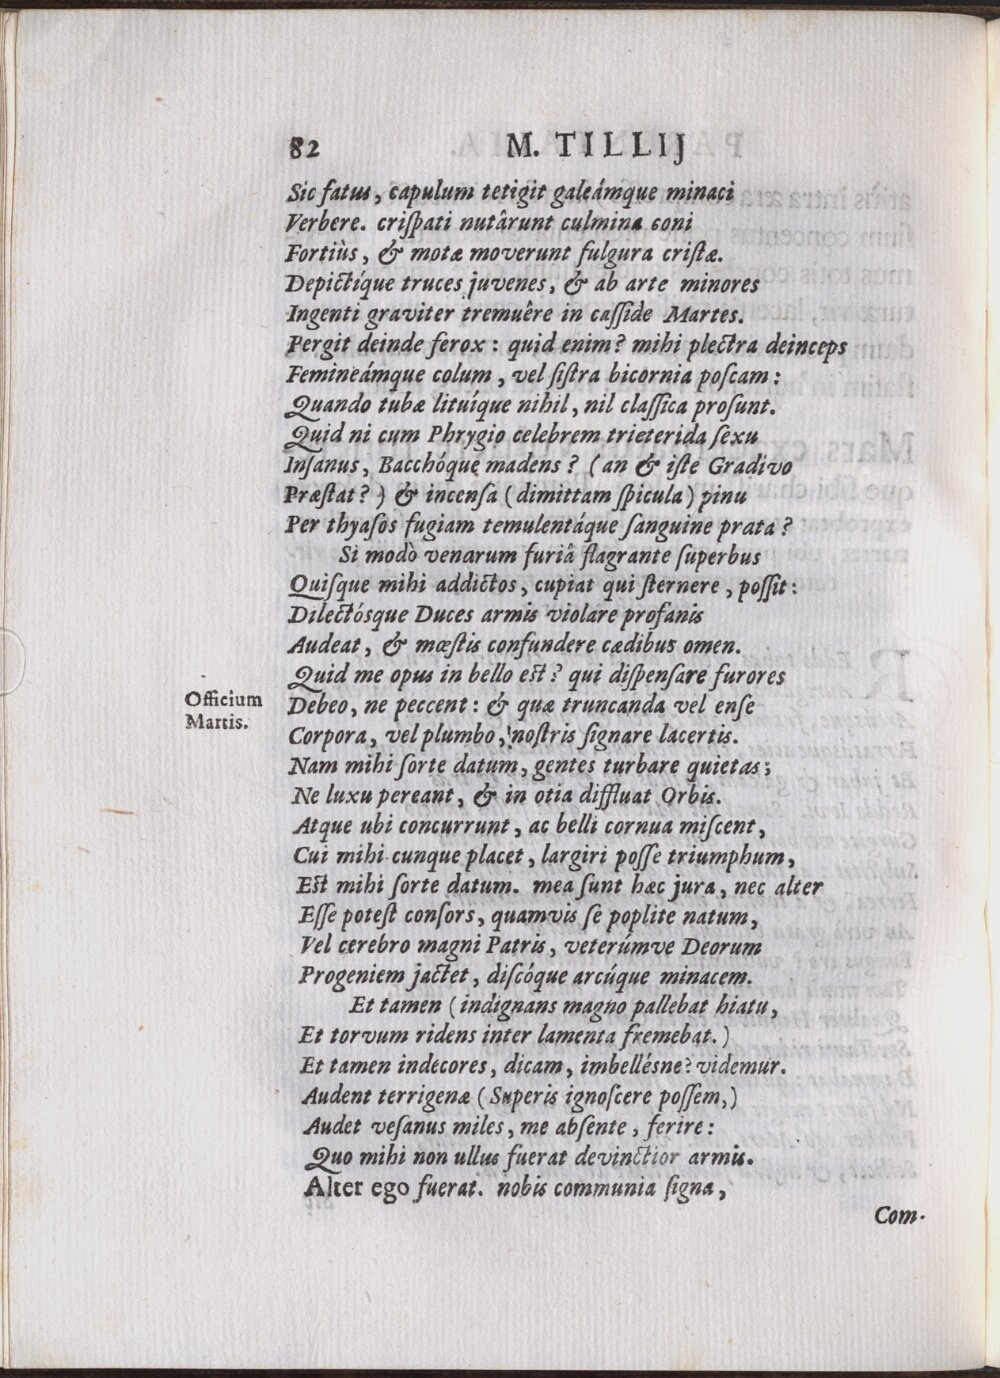 82 M. TILLIJ
Sic fatus, capulum tetigit galeámque minaci
Verbere. criſpati nutârunt culmina coni
Fortiùs, & motæ moverunt fulgura criſtæ.
Depictíque truces juvenes, & ab arte minores
Ingenti graviter tremuêre in caſſide Martes.
Pergit deinde ferox: quid enim? mihi plectra deinceps
Femineámque colum, vel ſiſtra bicornia poſcam:
Quando tubæ lituíque nihil, nil claſſica proſunt.
Quid ni cum Phrygio celebrem trieterida ſexu
Inſanus, Bacchóque madens? (an & iſte Gradivo
Præſtat?) & incenſa (dimittam ſpicula) pinu
Per thyaſos fugiam temulentáque ſanguine prata?
Si modò venarum furiâ flagrante ſuperbus
Quiſque mihi addictos, cupiat qui ſternere, poſſit:
Dilectósque Duces armis violare profanis
Audeat, & mœſtis confundere cædibus omen.
Quid me opus in bello eſt? qui diſpenſare furores
Officium
Martis.
Debeo, ne peccent: & quæ truncanda vel enſe
Corpora, vel plumbo, noſtris ſignare lacertis.
Nam mihi ſorte datum, gentes turbare quietas;
Ne luxu pereant, & in otia diffluat Orbis.
Atque ubi concurrunt, ac belli cornua miſcent,
Cui mihi cunque placet, largiri poſſe triumphum,
Eſt mihi ſorte datum. mea ſunt hæc jura, nec alter
Eſſe poteſt conſors, quamvis ſe poplite natum,
Vel cerebro magni Patris, veterúmve Deorum
Progeniem jactet, diſcóque arcúque minacem.
Et tamen (indignans magno pallebat hiatu,
Et torvum ridens inter lamenta fremebat.)
Et tamen indecores, dicam, imbellésne? videmur.
Audent terrigenæ (Superis ignoſcere poſſem,)
Audet veſanus miles, me abſente, ferire:
Quo mihi non ullus fuerat devinctior armis.
Alter ego fuerat. nobis communia ſigna,
Com-